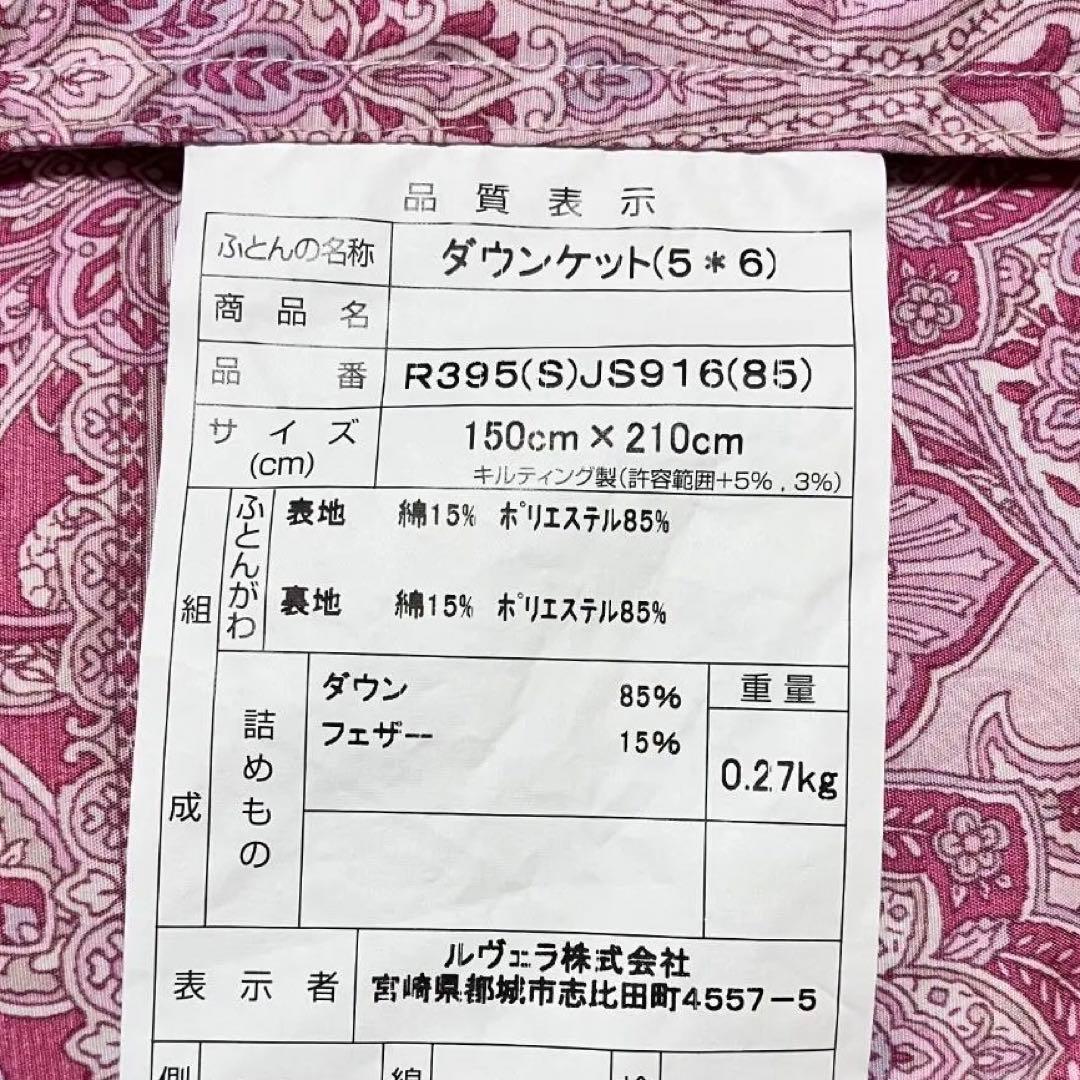 品質表示
ふとんの名称 ダウンケット(5*6)
商品名
品番 R395(S)JS916(85)
サイズ(cm) 150cm×210cm
キルティング製(許容範囲+5%,3%)
組成
ふとんがわ
表地 綿15% ポリエステル85%
裏地 綿15% ポリエステル85%
詰めもの
ダウン 85%
フェザー 15%
重量
0.27kg
表示者
ルヴェラ株式会社
宮崎県都城市志比田町4557-5